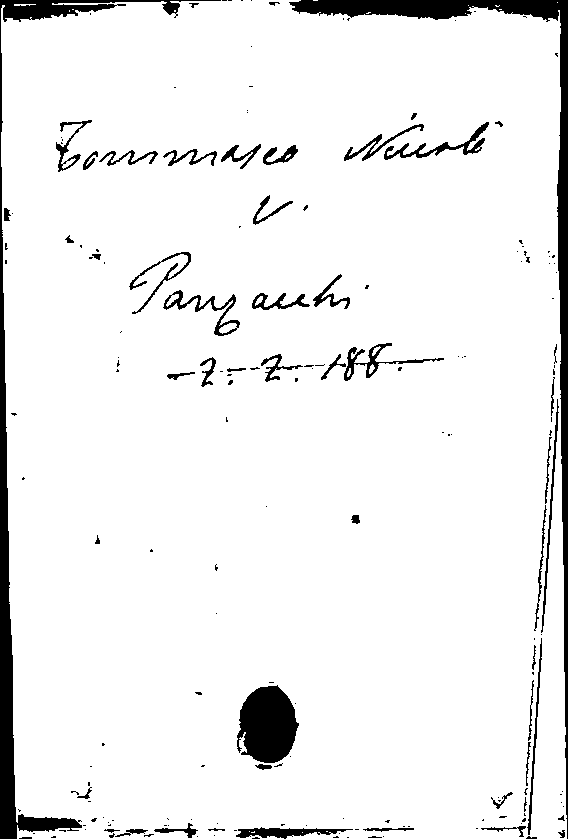 Tommaseo Niccolò
v.
Panzacchi
Z. Z. 188.